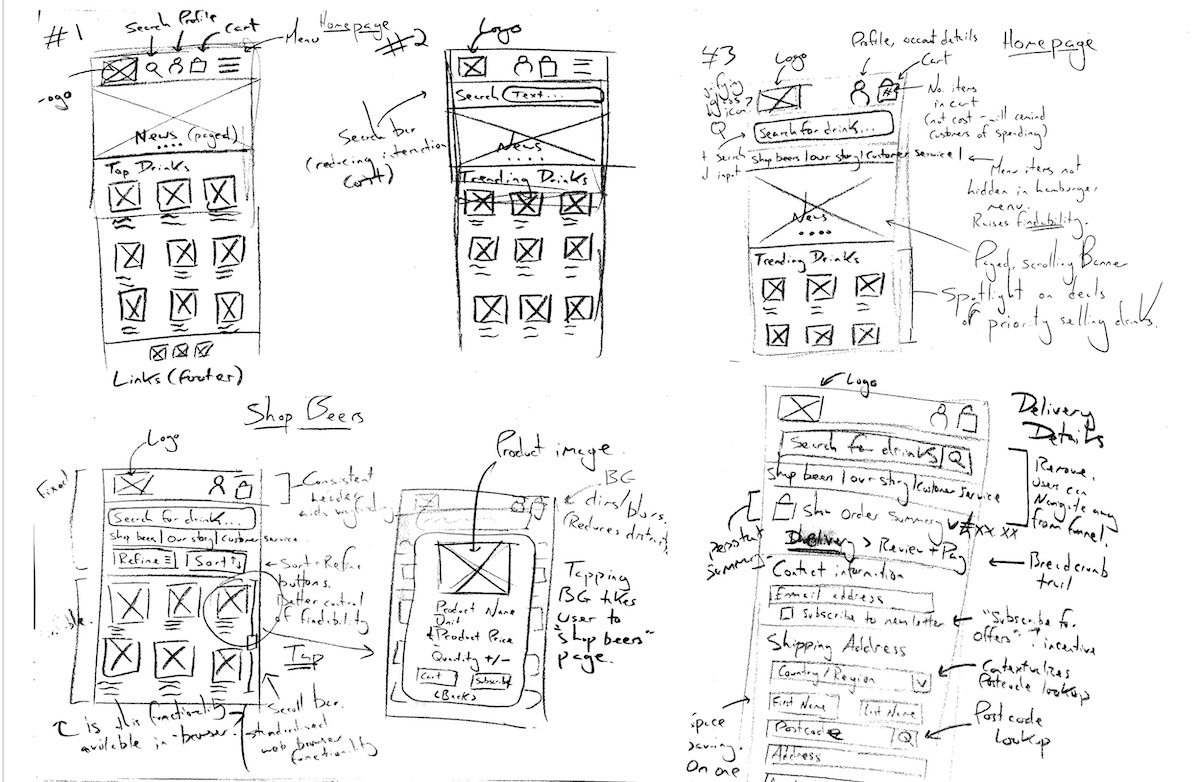 #1
Search
Profile
Cart
Menu
Homepage
News (paged)
Top Drinks
Links (footer)
#2
Logo
Search
Text...
Search bar
(reducing interaction
cost)
News
Trending Drinks
#3
Homepage
Logo
Profile, account details
Cart
No. items
in cart
(not cost - will remind
customers of spending)
Search for drink...
Shop beers | Our story | Customer service |
Menu items not
hidden in hamburger
menu.
Raises findability.
News
Paged, scrolling Banner
Spotlight on deals
of priority selling drinks.
Trending Drinks
Shop Beers
Logo
Fixed
Consistent
header
aids wayfinding
Search for drink...
Shop beers | Our story | Customer service.
Refine
Sort
Sort + Refine
buttons.
Better control
of findability
Tap
Scroll bar.
standardised
web browser
functionality
Is this functionality
available in-browser
Product image
BG
dims/blurs.
(Reduces distraction)
Product Name
Unit
Product Price
Quantity +/-
Cart
Subscribe
(Back)
Tapping
BG takes
user to
"Shop beers"
page.
Logo
Delivery
Details
Search for drinks
Q
Shop beer | Our story | Customer Service
Remove.
User can
Navigate away
from funnel.
Show Order Summary
#xx.xx
Persistent
Summary
Delivery > Review + Pay
Breadcrumb
trail
Contact information
Email address
Subscribe to newsletter
"Subscribe for
offers"
incentive
Shipping Address
Country/Region
Contextualizes
Postcode Lookup
First Name
Last Name
Postcode
Q
Postcode
Lookup
Address
Space
saving.
On one